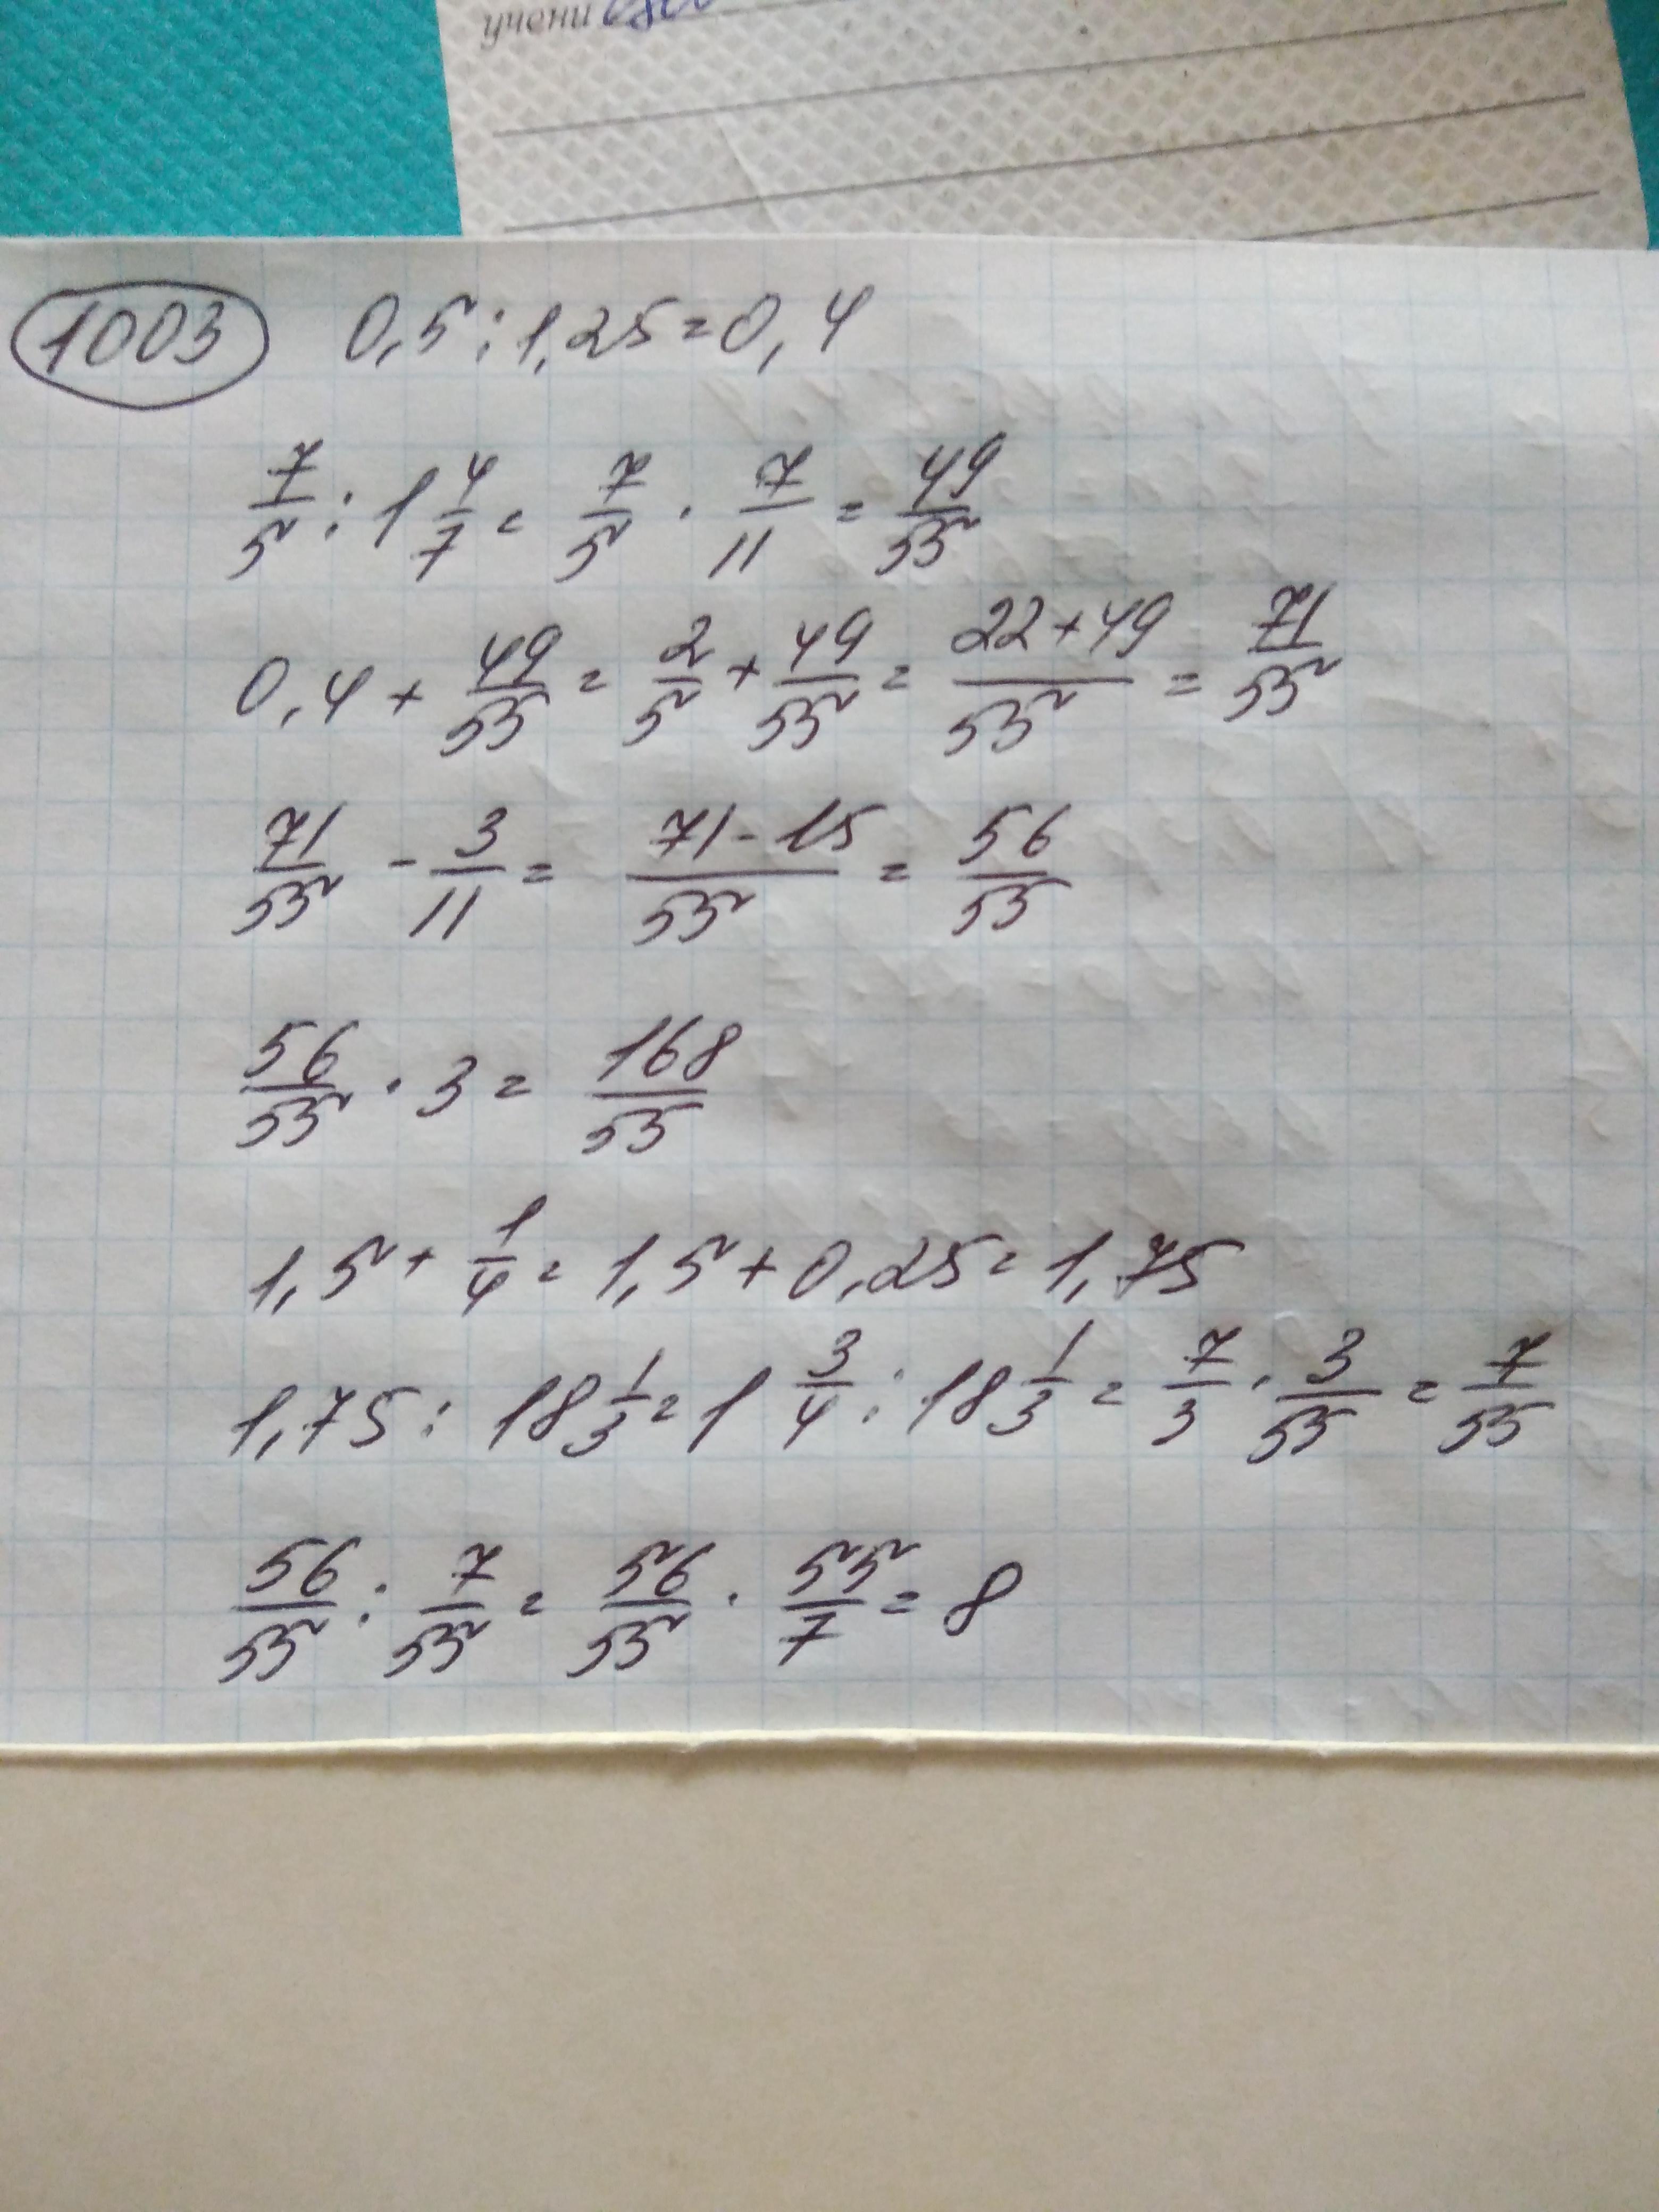 учени
1003 0,5 : 1,25 = 0,4
7/5 : 1 4/7 = 7/5 · 7/11 = 49/55
0,4 + 49/55 = 2/5 + 49/55 = 22+49/55 = 71/55
71/55 - 3/11 = 71-15/55 = 56/55
56/55 · 3 = 168/55
1,5 + 1/4 = 1,5 + 0,25 = 1,75
1,75 : 18 1/3 = 1 3/4 : 18 1/3 = 7/3 · 3/55 = 7/55
56/55 : 7/55 = 56/55 · 55/7 = 8